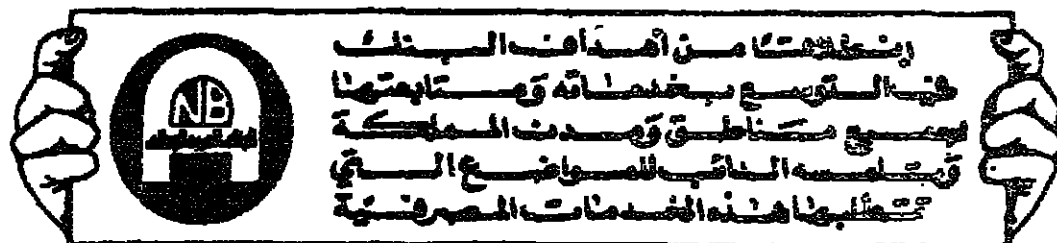 NB
إنطلاقًا من أهداف البنك
في التوسع بخدماته ومتابعتها
جميع مناطق ومدن المملكة
وبتلمسه الدائب للمواضع التي
تتطلبها هذه الخدمات المصرفية